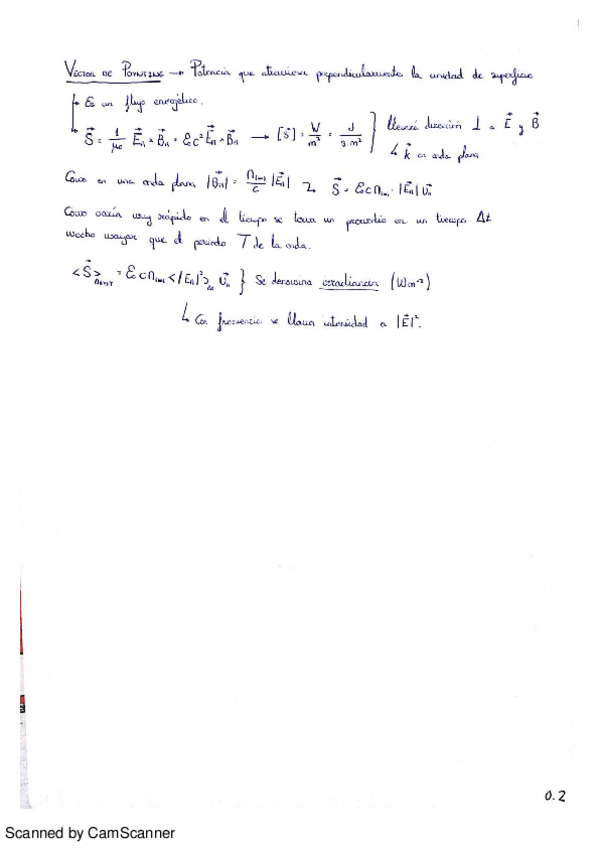 VECTOR DE POYNTING → Potencia que atraviesa perpendicularmente la unidad de superficie
Es un flujo energético.
S⃗ = 1/μ₀ E⃗ₙ × B⃗ₙ = ε₀c² E⃗ₙ × B⃗ₙ → [S⃗] = W/m² = J/s·m² } llevará dirección ⊥ a E⃗ y B⃗
↳ k⃗ en onda plana
Como en una onda plana |B⃗ₙ| = n/c |E⃗ₙ| S⃗ = ε₀c n · |E⃗ₙ| u⃗ₙ
Como varía muy rápido en el tiempo se toma un promedio en un tiempo Δt
mucho mayor que el periodo T de la onda.
<S⃗> = ε₀c n <|E⃗ₙ|²> u⃗ₙ } Se denomina irradiancia (Wm⁻²)
↳ Con frecuencia se llama intensidad a |E⃗|².
0.2
Scanned by CamScanner